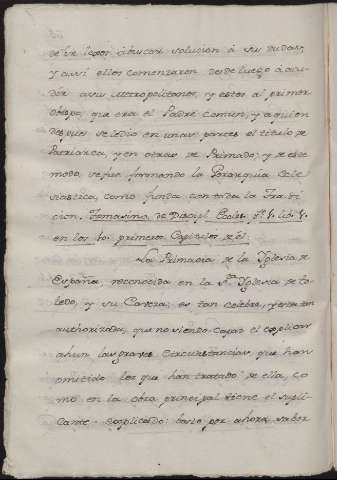 de ir lejos, á buscar solucion á su dudas,
y assi ellos comenzaron desde luego á acu-
dir a sus Metropolitanos, y estos al primer
obispo, que era el Padre comun, y a quien
despues se le dio en unas partes el titulo de
Patriarca, y en otras de Primado; y de este
modo, se fue formando la Gerarquia Ecle-
siastica, como funda con toda la Tra-
dicion. Tomasino de Discipl. Ecclec. P. 1. lib. 1.
en los 40. primeros Capitulos de el.
La Primacia de la Yglesia de
España, reconocida en la Sta. Yglesia de To-
ledo, y su Cavera; es tan celebre, y esta tan
authorizada, que no siendo capaz el explicar
ahun las graves circunstancias, que han
omitido los que han tratado de ella, co-
mo en la obra principal tiene el supli-
cante explicado: baste por ahora saber